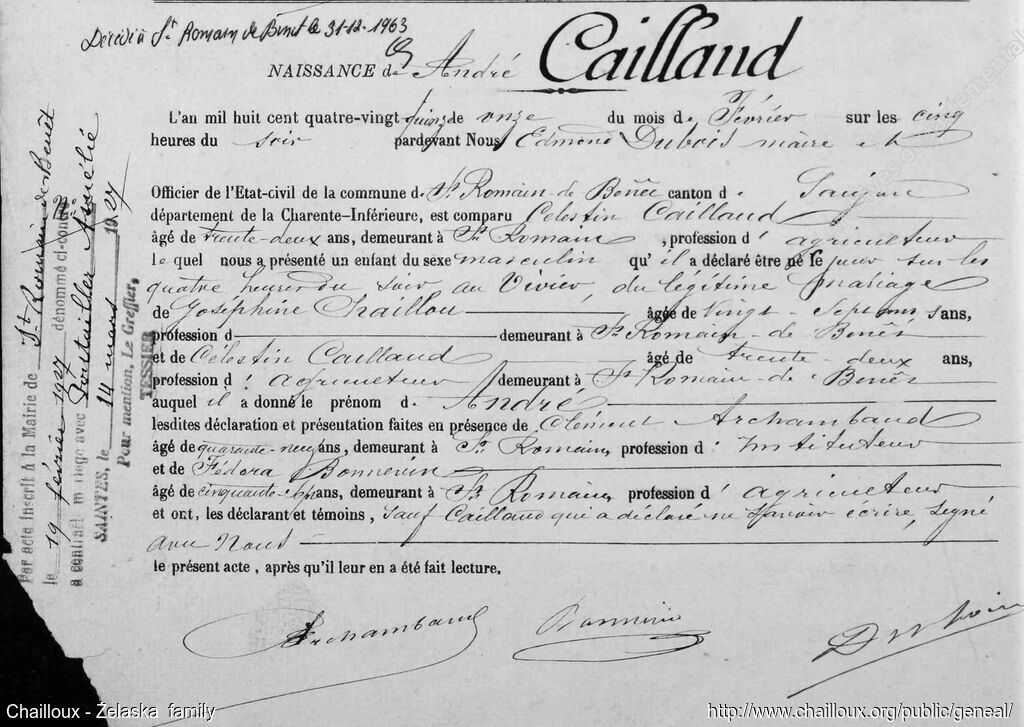 Décédé à St Romain de Benet le 31-12-1963
NAISSANCE de André Caillaud
L'an mil huit cent quatre-vingt quinze de onze du mois de Février sur les cinq
heures du soir pardevant Nous Edmond Dubois maire et
Officier de l'Etat-civil de la commune de St Romain-de-Benêt canton de Saujon
département de la Charente-Inférieure, est comparu Célestin Caillaud
âgé de trente-deux ans, demeurant à St Romain, profession d' agriculteur
le quel nous a présenté un enfant du sexe masculin qu' il a déclaré être né le jour sur les
quatre heures du soir au Vivier, du légitime mariage
de Joséphine Chaillou âgée de vingt-sept ans,
profession d demeurant à St Romain-de-Benêt
et de Célestin Caillaud âgé de trente-deux ans,
profession d' agriculteur demeurant à St Romain-de-Benêt
auquel il a donné le prénom d André
lesdites déclaration et présentation faites en présence de Clément Archambaud
âgé de quarante-neuf ans, demeurant à St Romain, profession d' instituteur
et de Fédora
âgé de cinquante ans, demeurant à St Romain, profession d' agriculteur
et ont, les déclarant et témoins, sauf Caillaud qui a déclaré ne savoir écrire, signé
avec Nous
le présent acte, après qu'il leur en a été fait lecture.
Archambaud Dubois
Par acte inscrit à la Mairie de St Romain de Benet
le 19 février 1927 dénommé ci-contre
a contracté mariage avec Poutailler Amélie
SAINTES, le 14 mars 1927
Pour mention, Le Greffier,
TESSIER
Chailloux - Żelaska family
http://www.chailloux.org/public/geneal/